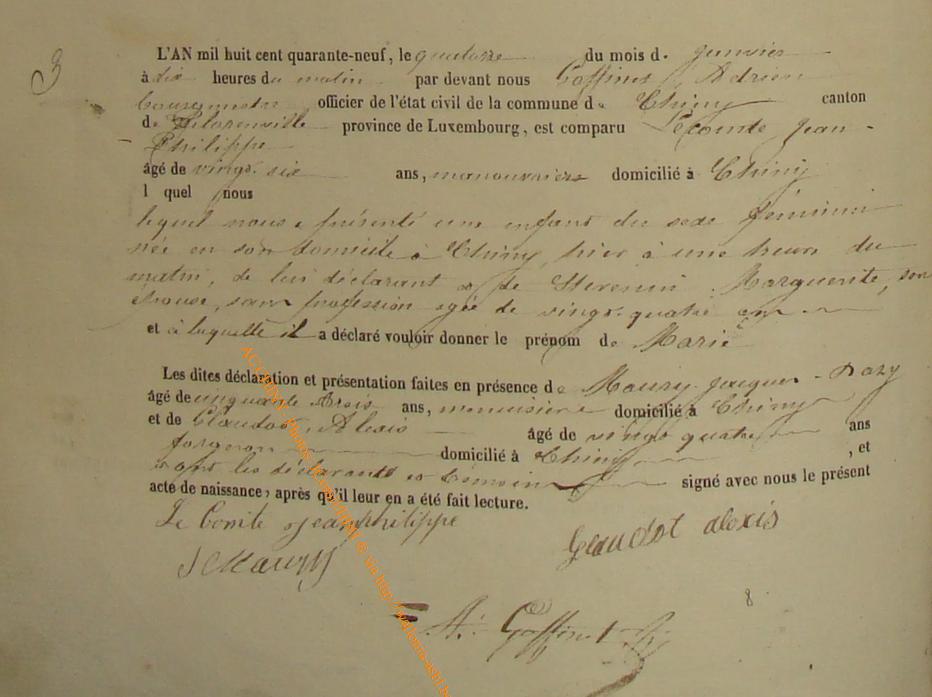 3
L'AN mil huit cent quarante-neuf, le quatorze du mois d. janvier
à dix heures du matin par devant nous Goffinet, Adrien
bourgmestre officier de l'état civil de la commune de Chiny canton
de Florenville province de Luxembourg, est comparu Lecomte Jean-
Philippe
âgé de vingt-six ans, manouvrier domicilié à Chiny
l quel nous
lequel nous a présenté une enfant du sexe féminin
née en son domicile à Chiny, hier à une heure du
matin, de lui déclarant et de Stevenin Marguerite, son
épouse, sans profession agée de vingt-quatre ans
et à laquelle il a déclaré vouloir donner le prénom de Marie
Les dites déclaration et présentation faites en présence de Maury Jacques-
âgé de cinquante trois ans, menuisier domicilié à Chiny
et de Claudot Alexis âgé de vingt quatre ans
forgeron domicilié à Chiny , et
ont les déclarant et témoins signé avec nous le présent
acte de naissance, après qu'il leur en a été fait lecture.
Le Comte Jean philippe
Glaudot alexis
J Maury
A. Goffinet
8